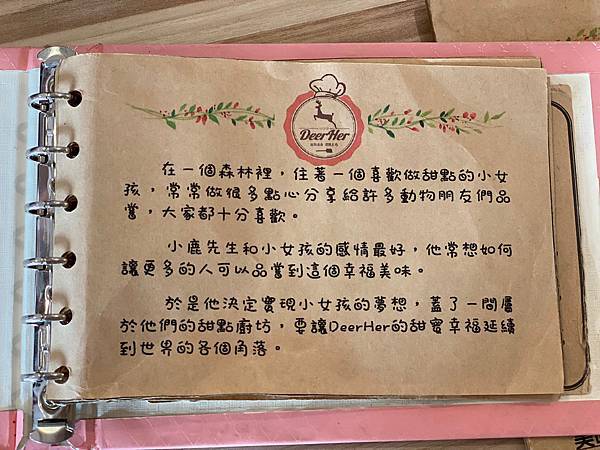 DeerHer
在一個森林裡，住著一個喜歡做甜點的小女
孩，常常做很多點心分享給許多動物朋友們品
嘗，大家都十分喜歡。
小鹿先生和小女孩的感情最好，他常想如何
讓更多的人可以品嘗到這個幸福美味。
於是他決定實現小女孩的夢想，蓋了一間屬
於他們的甜點廚坊，要讓DeerHer的甜蜜幸福延續
到世界的各個角落。